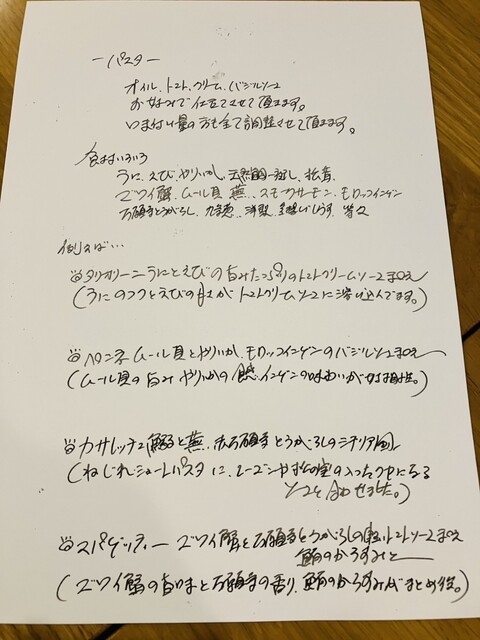 ーパスター
オイル、トマト、クリーム、バジルソース
お好みで仕立てさせて頂きます。
いま付け量の方も全て調整させて頂きます。
食材いろいろ
うに、えび、やりいか、
ズワイ蟹、ムール貝、蕪、スモークサーモン、モロッコインゲン
万願寺とうがらし、九条葱、 等々
例えば…
タリオリーニ うにとえびの旨みたっぷりのトマトクリームソース和え
(うにのコクとえびの がトマトクリームソースに溶け込んでます。)
ペンネ ムール貝とやりいか、モロッコインゲンのバジルソース和え
(ムール貝の旨み やりいかの 感、インゲンの味わいが好相性。)
カサレッチェ と蕪、赤万願寺とうがらしのシチリア風
(ねじれショートパスタに、レーズンや松の実の入ったクセになる
ソースと合わせました。)
スパゲッティー ズワイ蟹と万願寺とうがらしの トマトソース和え
鮪のからすみと
(ズワイ蟹の旨味と万願寺の香り、鮪のからすみがまとめ役。)